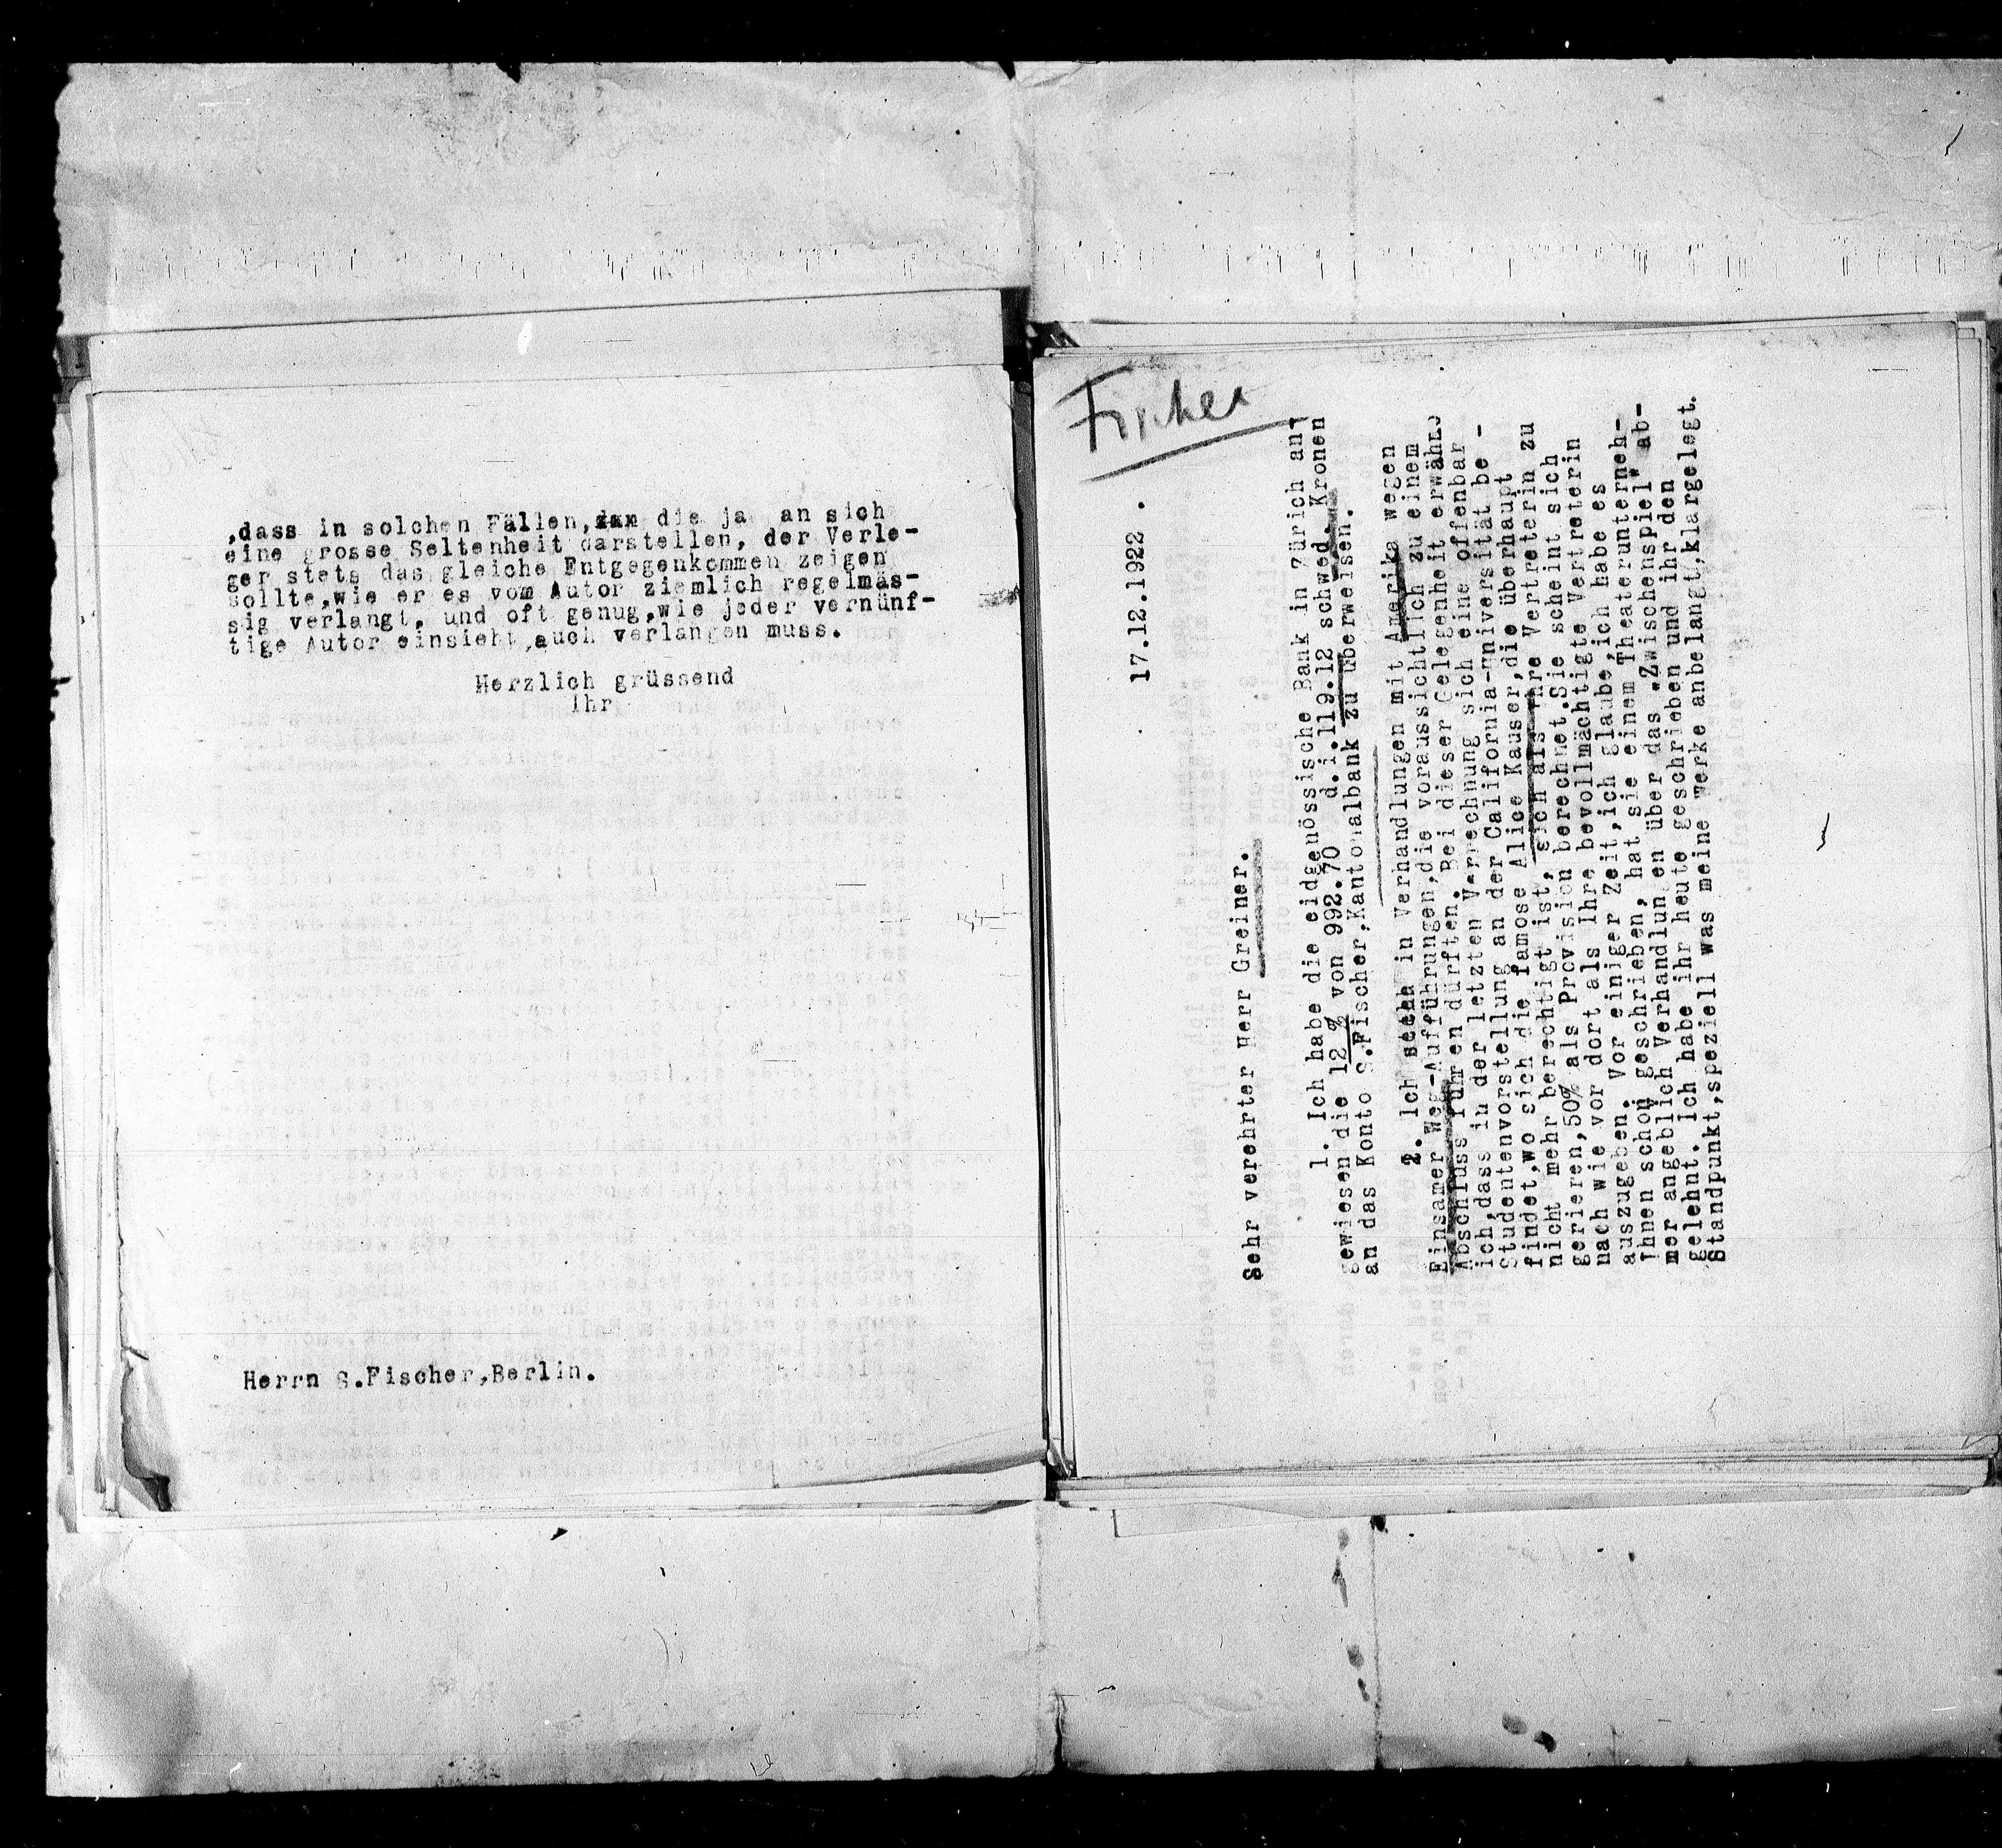 ,dass in solchen Fällen,dan die ja an sich
eine grosse Seltenheit darstellen, der Verle-
ger stets das gleiche Entgegenkommen zeigen
sollte,wie er es vom Autor ziemlich regelmäs-
sig verlangt, und oft genug,wie jeder vernünf-
tige Autor einsieht,auch verlangen muss.
Herzlich grüssend
Ihr
Herrn S.Fischer,Berlin.
Fischer
17.12.1922 .
Sehr verehrter Herr Greiner.
1. Ich habe die eidgenössische Bank in Zürich an-
gewiesen die 12 % von 992.70 d.i.119.12 schwed. Kronen
an das Konto S.Fischer,Kantonalbank zu überweisen.
2. Ich stehe in Verhandlungen mit Amerika wegen
Einsamer Weg-Aufführungen,die voraussichtlich zu einem
Abschluss führen dürften. Bei dieser Gelegenheit erwähne
ich,dass in der letzten Verrechnung sich eine offenbar
Studentenvorstellung an der California-Universität be -
findet,wo sich die famose Alice Kauser,die überhaupt
nicht mehr berechtigt ist, sich als Ihre Vertreterin zu
gerieren,50% als Provision berechnet.Sie scheint sich
nach wie vor dort als Ihre bevollmächtigte Vertreterin
auszugeben. Vor einiger Zeit,ich glaube,ich habe es
Ihnen schon geschrieben, hat sie einem Theaterunterneh-
mer angeblich Verhandlungen über das "Zwischenspiel" ab-
gelehnt. Ich habe ihr heute geschrieben und ihr den
Standpunkt,speziell was meine Werke anbelangt,klargelegt.